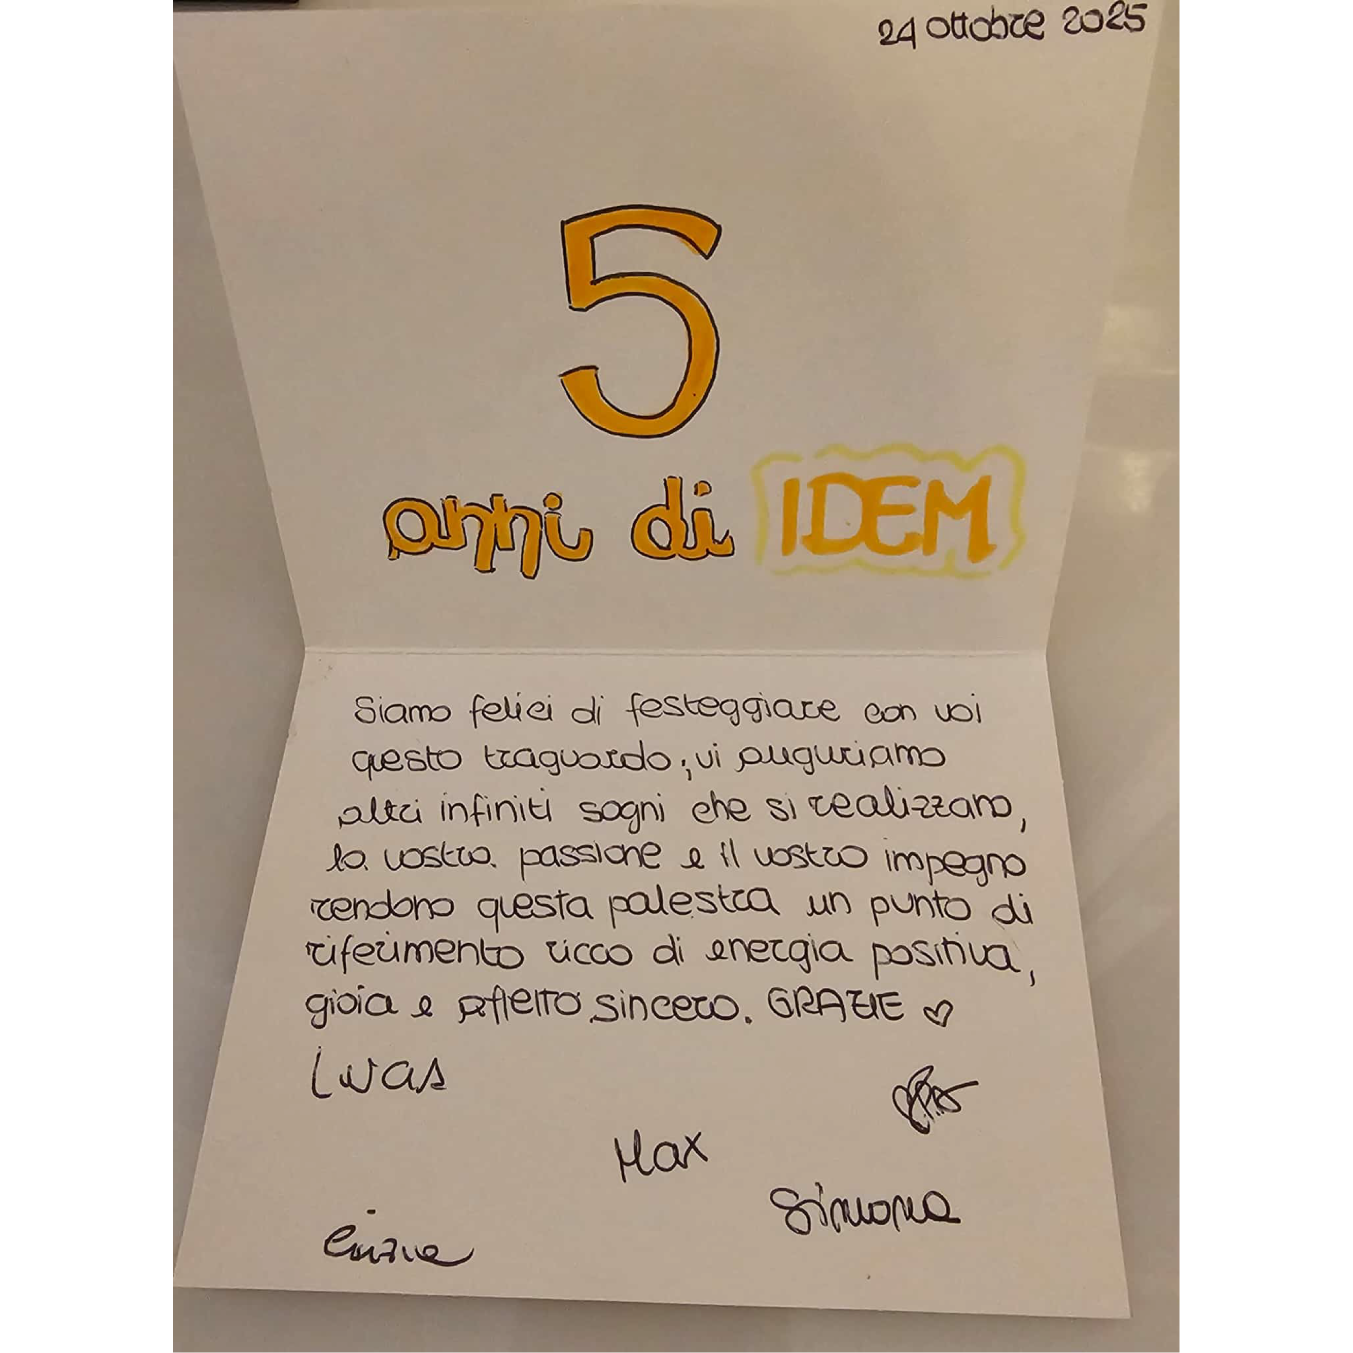 24 ottobre 2025
5
anni di IDEM
Siamo felici di festeggiare con voi
questo traguardo, vi auguriamo
altri infiniti sogni che si realizzano,
la vostra passione e il vostro impegno
rendono questa palestra un punto di
riferimento ricco di energia positiva,
gioia e affetto sincero. GRAZIE ♡
Lucas
Max
Simona